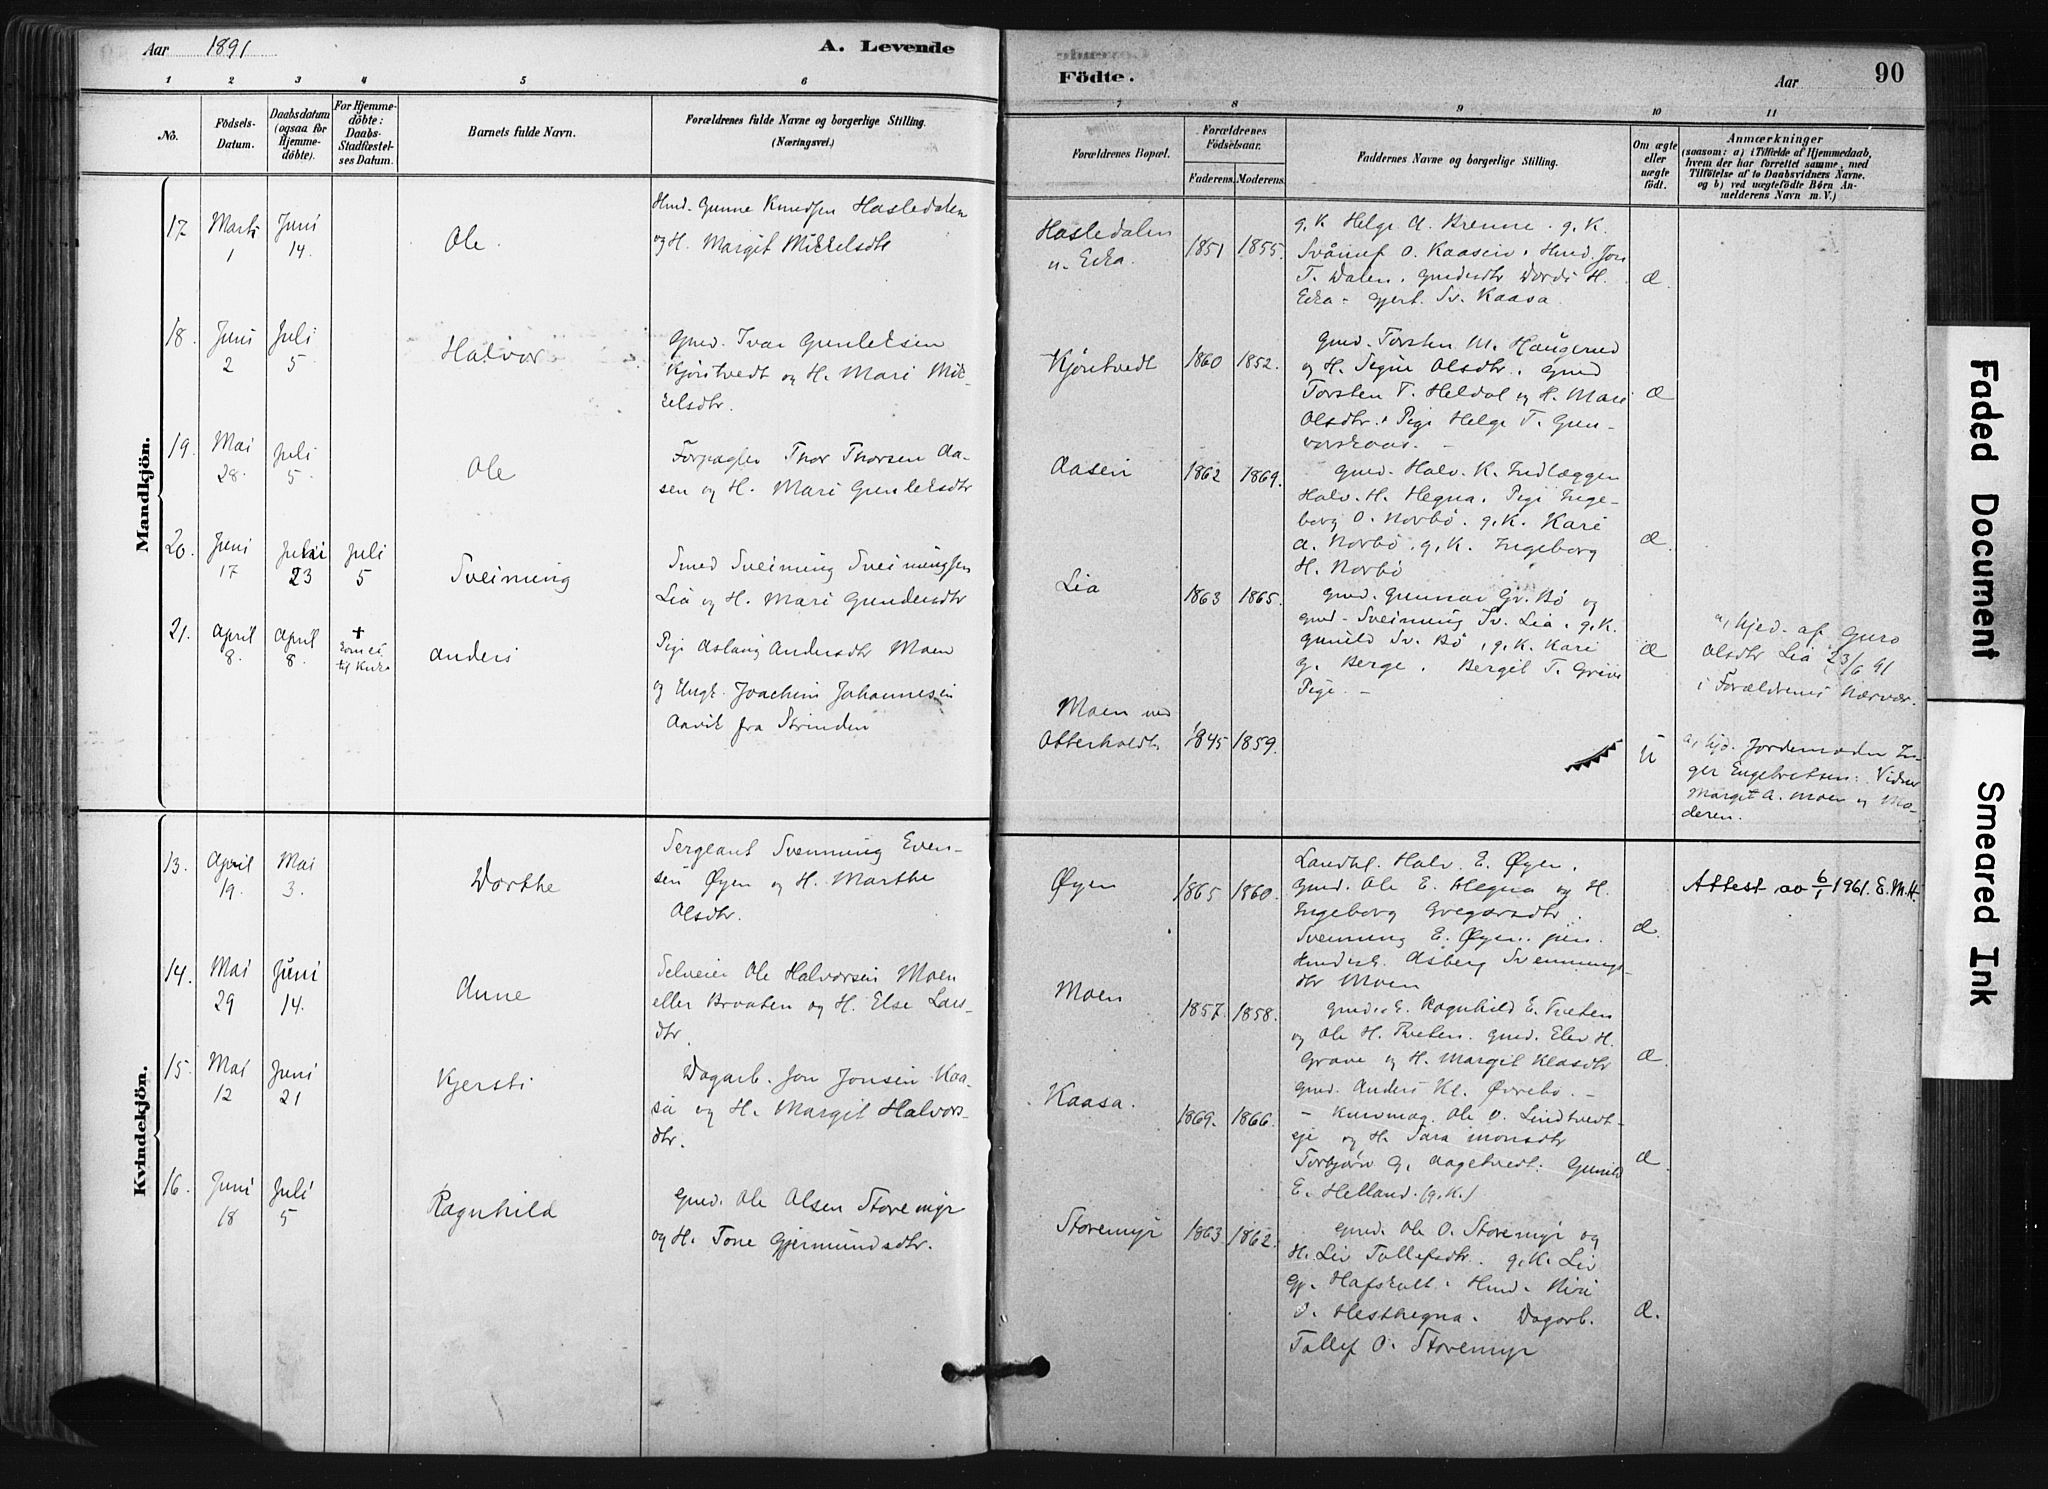 Aar 1891
A. Levende
1 2 3 4 5 6
No.
Födsels-Datum.
Daabsdatum (ogsaa for Hjemmedöbte).
For Hjemmedöbte: Daabs-Stadfæstelses Datum.
Barnets fulde Navn.
Forældrenes fulde Navne og borgerlige Stilling.
(Næringsvei.)
Mandkjön.
17 Marts 1 Juni 14. Ole.
Hmd. Gunne Knudsen Hasledalen
og H. Margit Mikkelsdtr
18. Juni 2 Juli 5 Halvor
Gmd. Ivar Gunleksen
Kjöntvedt og H. Mari Mik-
kelsdtr.
19. Mai 28. Juli 5. Ole
Forpagter Thor Thorsen Aa-
sen og H. Mari Gunleksdtr
20. Juni 17 Juni 23 Juli 5 Sveinung
Smed Sveinung Sveinungsen
Lia og H. Mari Gundersdtr
21. April 8. April 8. + kom ei til Kirke Anders
Pige Aslaug Andersdtr Moen
og Ungk. Joachim Johannesen
Aavik fra Strinden
Kvindekjön.
13. April 19. Mai 3. Dorthe
Sergeant Svenning Even-
sen Øyen og H. Marthe
Olsdtr.
14. Mai 29 Juni 14. Anne
Selveier Ole Halvorsen Moen
eller Braaten og H. Else Lars-
dtr.
15. Mai 12 Juni 21 Kjersti
Dagarb. Jon Jonsen Kaa-
sa og H. Margit Halvors-
dtr.
16. Juni 18 Juli 5 Ragnhild
Gmd. Ole Olsen Storemyr
og H. Tone Gjermundsdtr.
Födte.
Aar
90
7 8 9 10 11
Forældrenes Bopæl.
Forældrenes Födselsaar.
Faderens. Moderens.
Faddernes Navne og borgerlige Stilling.
Om ægte eller uægte födt.
Anmærkninger
(saasom: a) i Tilfælde af Hjemmedaab,
hvem der har forrettet samme, med
Tilföielse af to Daabsvidners Navne.
og b) ved uægtefödte Børn An-
melderens Navn m. V.)
Hasledalen
u. Eika. 1851 1855. æ
g. K Helge A. Brenne. g. K.
O. Kaasen. Hmd. Jon
T. Dalen. Dordi H.
Eika - Gjert. Sv. Kaasa.
Kjöntvedt 1860 1852. æ
Gmd. Torsten M. Haugerud
og H. Signe Olsdtr. Gmd
Torsten T. Heldal og H. Mari
Olsdtr. Pige Helge T. Gun-
Aasen 1862 1869. æ.
Gmd. Halv. K. Indlæggen
Halv. H. Hegna. Pige Inge-
borg O. Norbö. g. K. Kari
A. Norbö. g. K. Ingeborg
H. Norbö
Lia 1863 1865. æ
Gmd. Gunnar Gr. Bö og
Gmd. Sveinung Sv. Lia. g. K.
Gunild Sv. Bö, g. K. Kari
G. Berge. Bergit T. Grive
Pige. -
a, hjed. af Guro
Olsdtr Lia 23/6 91
i Forældrenes Nærvær.
Moen ved
Otterholdt 1845 1859. u
a, hjd. Jordemoder In-
ger Engebretsen. Vidner
Margit A. Moen og Mo-
deren.
Øyen 1865 1860. æ.
Landhl. Halv. E. Øyen.
Gmd. Ole E. Hegna og H.
Ingeborg Gregarsdtr.
Svenning E. Øyen.
Asberg Svennings-
dtr Moen
Attest av 6/1 1961. E.M.H.
Moen 1857. 1858. æ.
Ragnhild E. Tveten
og Ole H. Tveten. Gmd. Elev H.
Grave og H. Margit Klasdtr
Gmd. Anders Kl. Øvrebö. -
Kaasa. 1869. 1866. æ.
- Kurvmag. Ole O. Lindtvedt-
eje og H. Sara Monsdtr
Torbjörn G. Aagetvedt. Gunild
E. Helland. (g. K.)
Storemyr 1863 1862. æ.
Gmd. Ole O. Storemyr og
H. Liv Tollefsdtr. g. K. Liv
Gj. Hafskolt. Hmd.
O. Hesthegna. Dagarb.
Tollef O. Storemyr
Faded Document
Smeared Ink